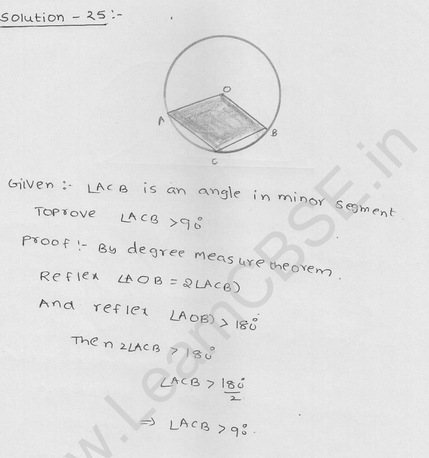 Solution - 25:-
O
A
B
C
Given :- ∠ACB is an angle in minor segment
TOProve ∠ACB > 90°
Proof :- By degree measure theorem.
Reflex ∠AOB = 2∠ACB)
And reflex ∠AOB) > 180°
Then 2∠ACB > 180°
∠ACB > 180°/2
⇒ ∠ACB > 90°.
www.LearnCBSE.in